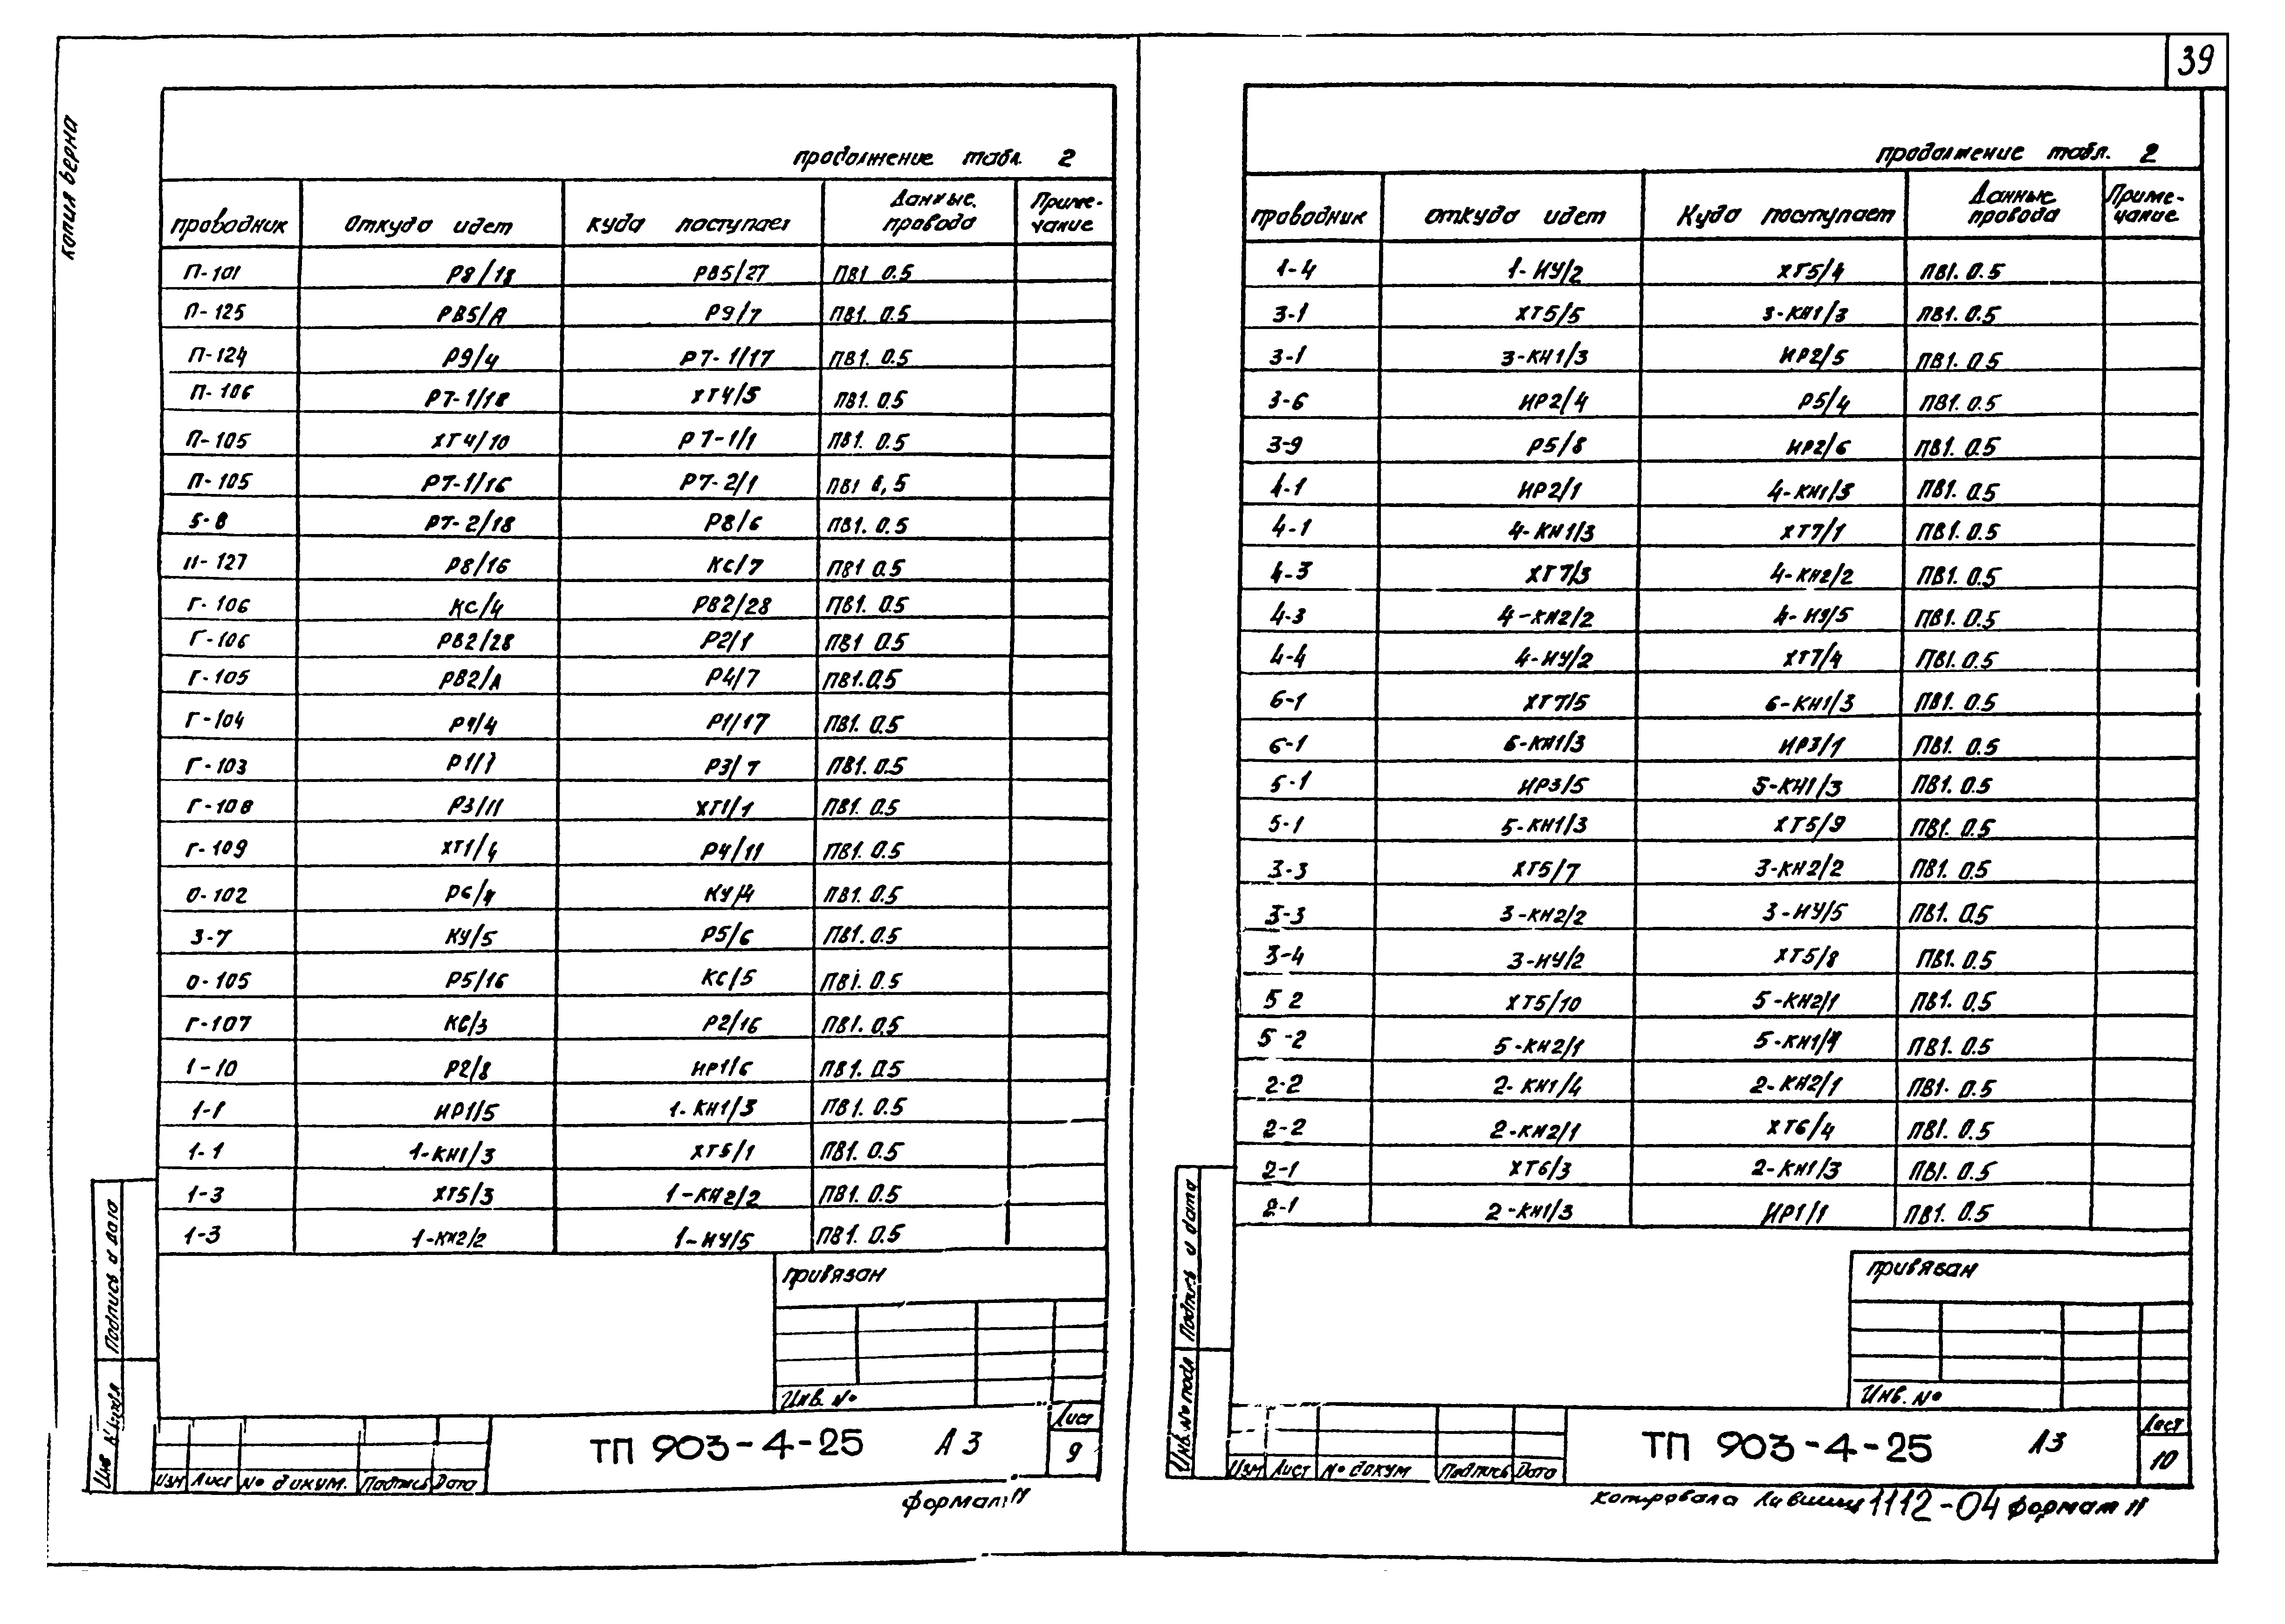 39
копия верна
продолжение табл. 2
проводник Откуда идет куда поступает Данные провода Приме-чание
П-101 Р8/18 РВ5/27 ПВ1. 0.5
П-125 РВ5/А Р9/7 ПВ1. 0.5
П-124 Р9/4 Р7-1/17 ПВ1. 0.5
П-106 Р7-1/18 ХТ4/5 ПВ1. 0.5
П-105 ХТ4/10 Р7-1/1 ПВ1. 0.5
П-105 Р7-1/16 Р7-2/1 ПВ1 0,5
5-8 Р7-2/18 Р8/6 ПВ1. 0.5
П-127 Р8/16 КС/7 ПВ1 0.5
Г-106 КС/4 РВ2/28 ПВ1. 0.5
Г-106 РВ2/28 Р2/1 ПВ1 0.5
Г-105 РВ2/А Р4/7 ПВ1.0.5
Г-104 Р4/4 Р1/17 ПВ1. 0.5
Г-103 Р1/7 Р3/7 ПВ1. 0.5
Г-108 Р3/11 ХТ1/1 ПВ1. 0.5
Г-109 ХТ1/4 Р4/11 ПВ1. 0.5
0-102 Р6/4 КУ/4 ПВ1. 0.5
3-7 КУ/5 Р5/6 ПВ1. 0.5
0-105 Р5/16 КС/5 ПВ1. 0.5
Г-107 КС/3 Р2/16 ПВ1. 0.5
1-10 Р2/8 ИР1/6 ПВ1. 0.5
1-1 ИР1/5 1-КН1/3 ПВ1. 0.5
1-1 1-КН1/3 ХТ5/1 ПВ1. 0.5
1-3 ХТ5/3 1-КН2/2 ПВ1. 0.5
1-3 1-КН2/2 1-ИУ/5 ПВ1. 0.5
привязан
Инв. №
ТП 903-4-25 А3
Лист
9
Изм Лист № докум. Подпись Дата
Подпись и дата
Инв № подл
формат 11
продолжение табл. 2
проводник откуда идет Куда поступает Данные провода Приме-чание
1-4 1-ИУ/2 ХТ5/4 ПВ1. 0.5
3-1 ХТ5/5 3-КН1/3 ПВ1. 0.5
3-1 3-КН1/3 ИР2/5 ПВ1. 0.5
3-6 ИР2/4 Р5/4 ПВ1. 0.5
3-9 Р5/8 ИР2/6 ПВ1. 0.5
4-1 ИР2/1 4-КН1/3 ПВ1. 0.5
4-1 4-КН1/3 ХТ7/1 ПВ1. 0.5
4-3 ХТ7/3 4-КН2/2 ПВ1. 0.5
4-3 4-КН2/2 4-ИУ/5 ПВ1. 0.5
4-4 4-ИУ/2 ХТ7/4 ПВ1. 0.5
6-1 ХТ7/5 6-КН1/3 ПВ1. 0.5
6-1 6-КН1/3 ИР3/1 ПВ1. 0.5
5-1 ИР3/5 5-КН1/3 ПВ1. 0.5
5-1 5-КН1/3 ХТ5/9 ПВ1. 0.5
3-3 ХТ5/7 3-КН2/2 ПВ1. 0.5
3-3 3-КН2/2 3-ИУ/5 ПВ1. 0.5
3-4 3-ИУ/2 ХТ5/8 ПВ1. 0.5
5 2 ХТ5/10 5-КН2/1 ПВ1. 0.5
5-2 5-КН2/1 5-КН1/4 ПВ1. 0.5
2-2 2-КН1/4 2-КН2/1 ПВ1. 0.5
2-2 2-КН2/1 ХТ6/4 ПВ1. 0.5
2-1 ХТ6/3 2-КН1/3 ПВ1. 0.5
2-1 2-КН1/3 ИР1/1 ПВ1. 0.5
привязан
Инв. №
ТП 903-4-25 А3
Лист
10
Изм Лист № докум Подпись Дата
Подпись и дата
Инв. № подл
копировала 1112-04 формат 11